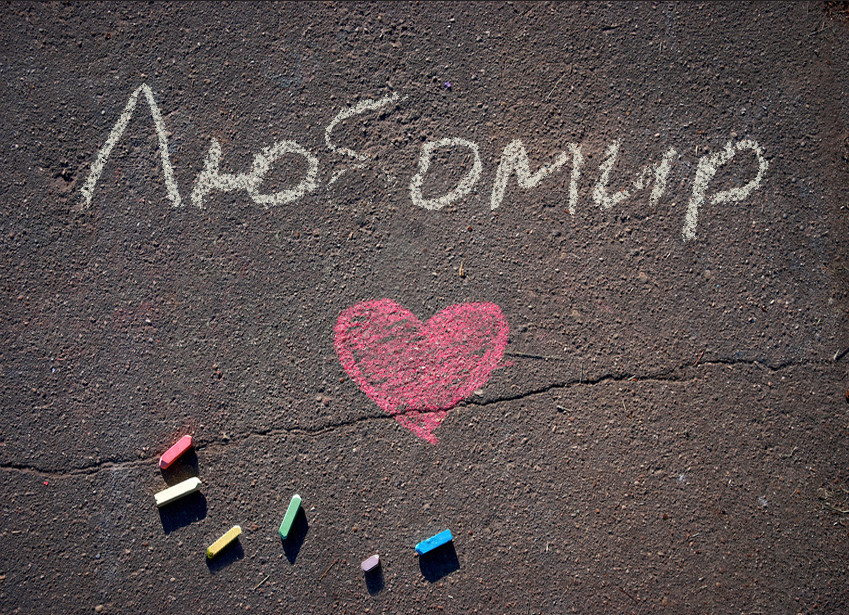 Любомир